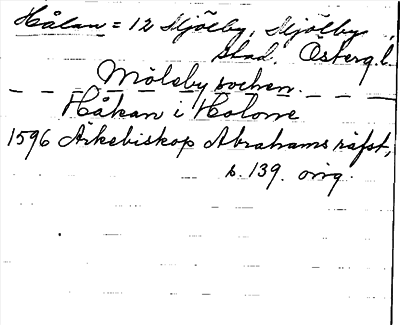 Hålan = 12 Mjölby, Mjölby
stad. Österg. l.
Mölsby socken.
Håkan i Holone
1596 Ärkebiskop Abrahams räfst,
s. 139. orig.